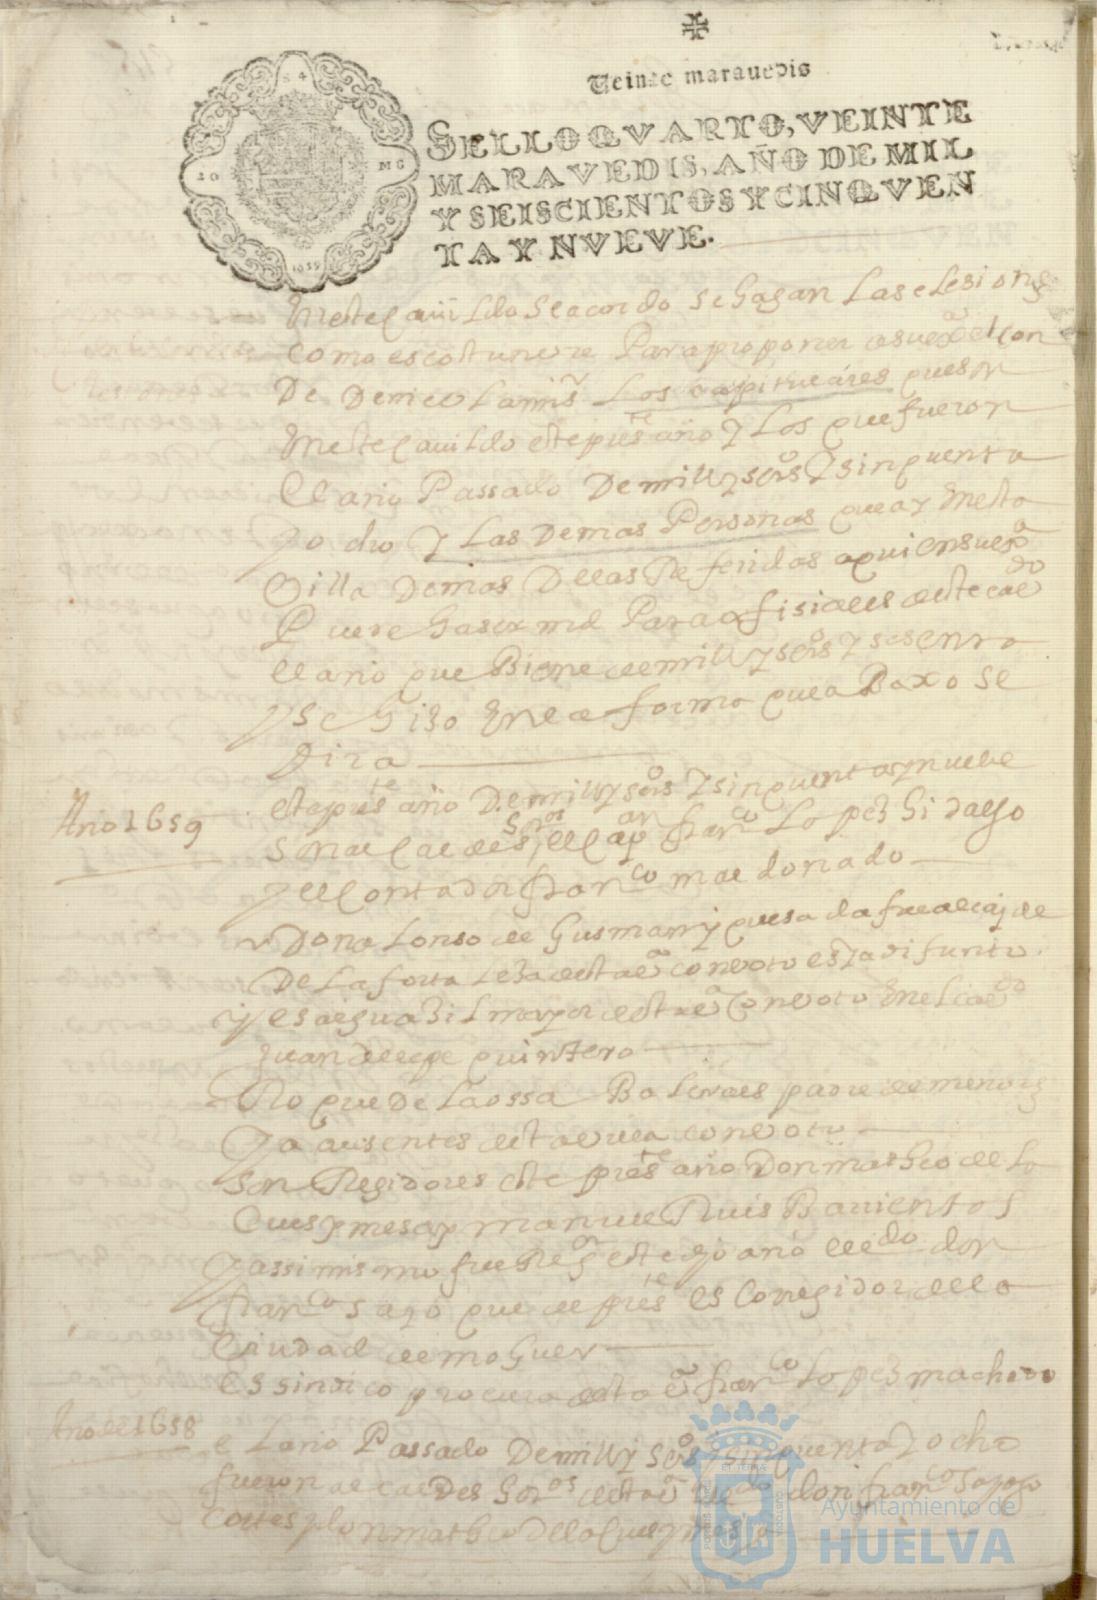 Veinte maravedis
SELLO QVARTO, VEINTE
MARAVEDIS, AÑO DE MIL
Y SEISCIENTOS Y CINQVEN
TA Y NVEVE.
En este cauildo se acordo se hagan las elesiones
como es costunvre Para proponer a su exª el con
De De niebla mi sʳ los capitulares que son
En este cauildo este pres.te año y Los que fueron
El año Passado De mill y sos y sinquenta
y ocho y Las Demas Personas que ay En esta
Villa Demas De las Referidas a quien su exª
Puede haser md Para ofisiales deste caudo
el año que Biene de mill y sos y sesenta
y se hiso En la forma que a Baxo se
Dira
Año 1659
este preste año De mill y sos y sinquenta y nuebe
son alcaldes el capan franco Lopez hidalgo
y el Contador franco maldonado
Don alonso de Gusman y quesada fue alcaide
De La fortaleza desta vª con voto esta difunto
y es alguasil mayor desta vª con voto el licdo
Juan de lepe quintero
Roque De La ossa Balcraes padre de menores
y ausentes desta villa con voto
son Regidores este preste año Don matheo de la
Cues y mesa y manuel Ruis Barientos
y assimismo fue Regor este dho año el ldo don
franco sayo que de preste es Corregidor de la
Ciudad de moguer
es sindico procura desta vª franco Lopez machado
Año de 1658
el año Passado De mill y sos y sinquenta y ocho
fueron alcaldes hordos desta vª don franco
Cortes y don matheo de la Cues y mesa
ET TERRÆ
PORTUS MARIS
CUSTODIA
Ayuntamiento de
HUELVA